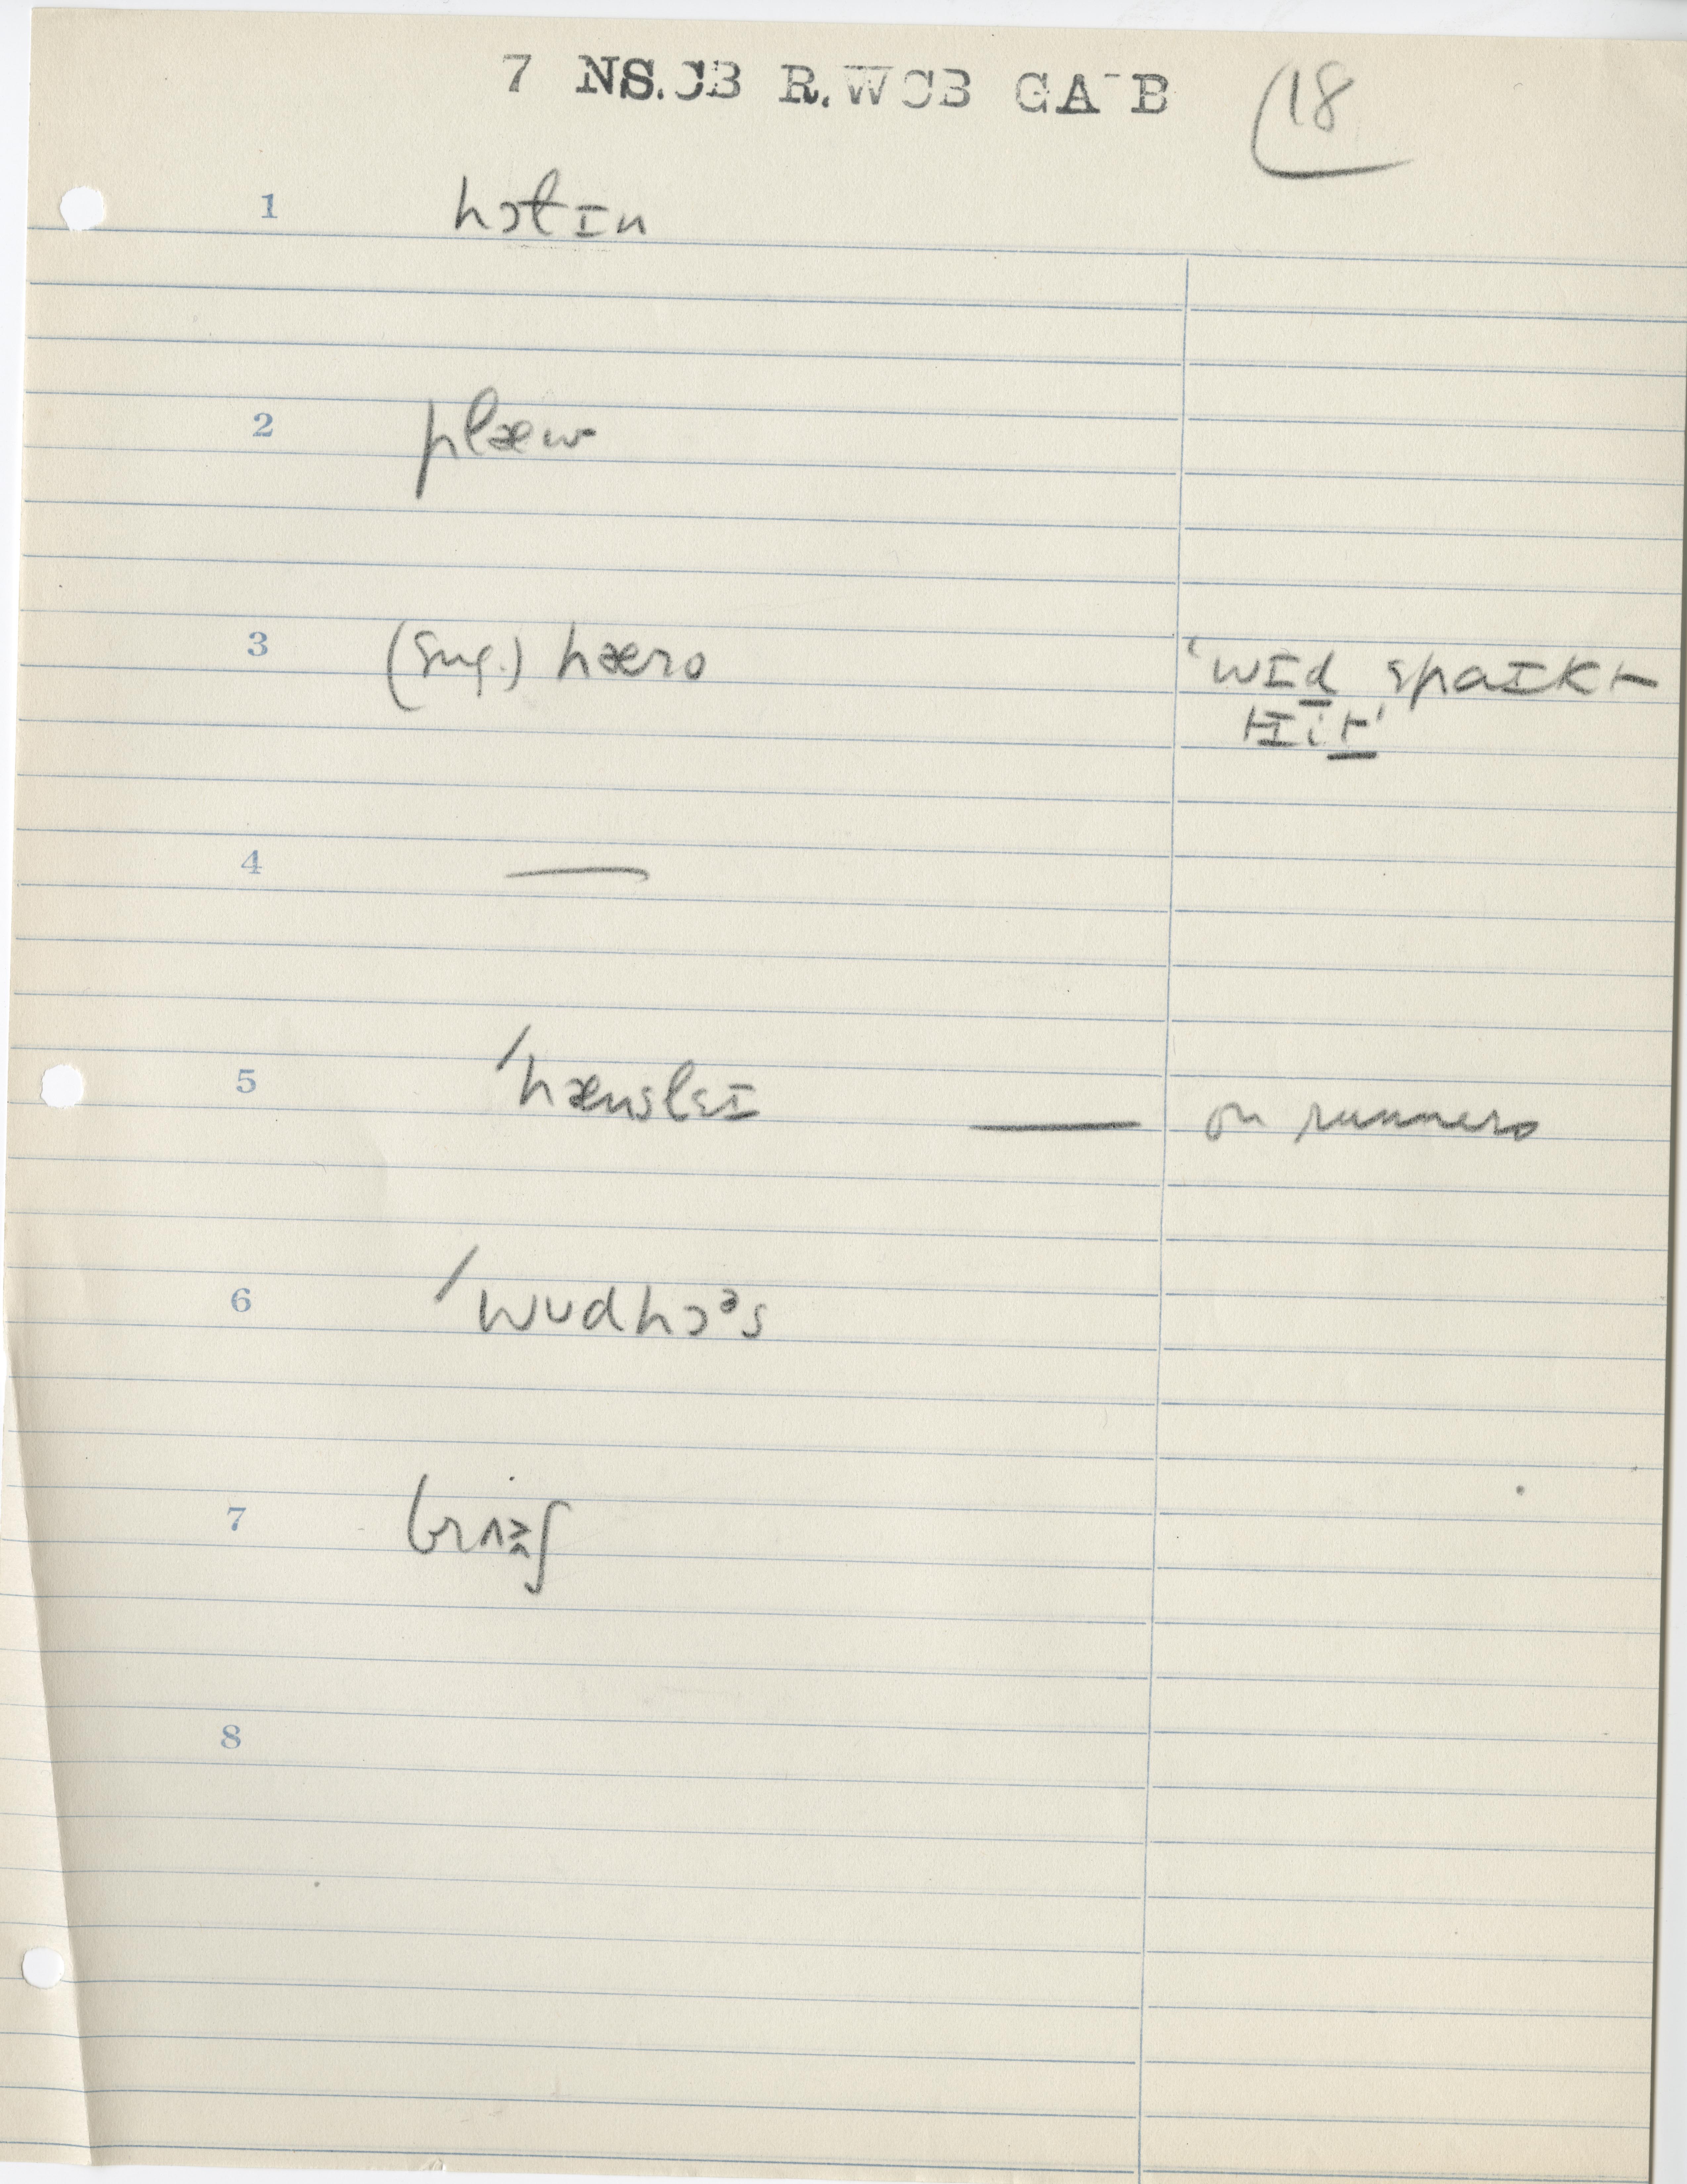 7 NS.CB R.WCB GA-B 18
1 hɔtɪn
2 plæw
3 (sug.) hæro 'wɪd spaɪkt
tɪit'
4 —
5 ˈhænsleɪ — on runners
6 ˈwudhɔᵊs
7
8